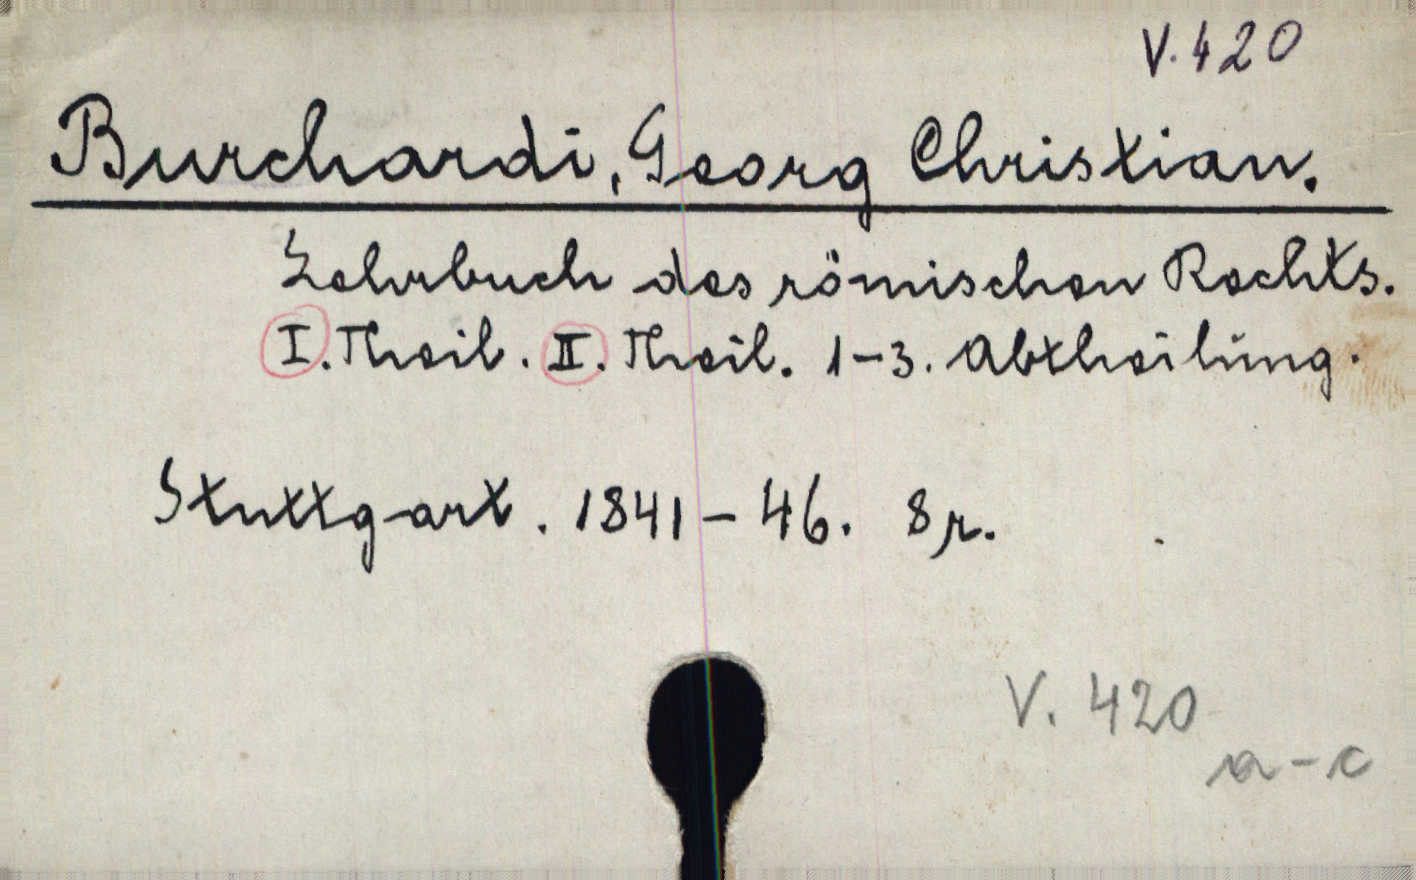 V. 420
Burchardi, Georg Christian.
Lehrbuch des römischen Rechts.
I. Theil. II. Theil. 1-3. Abtheilung.
Stuttgart. 1841-46. 8r.
V. 420
a-c